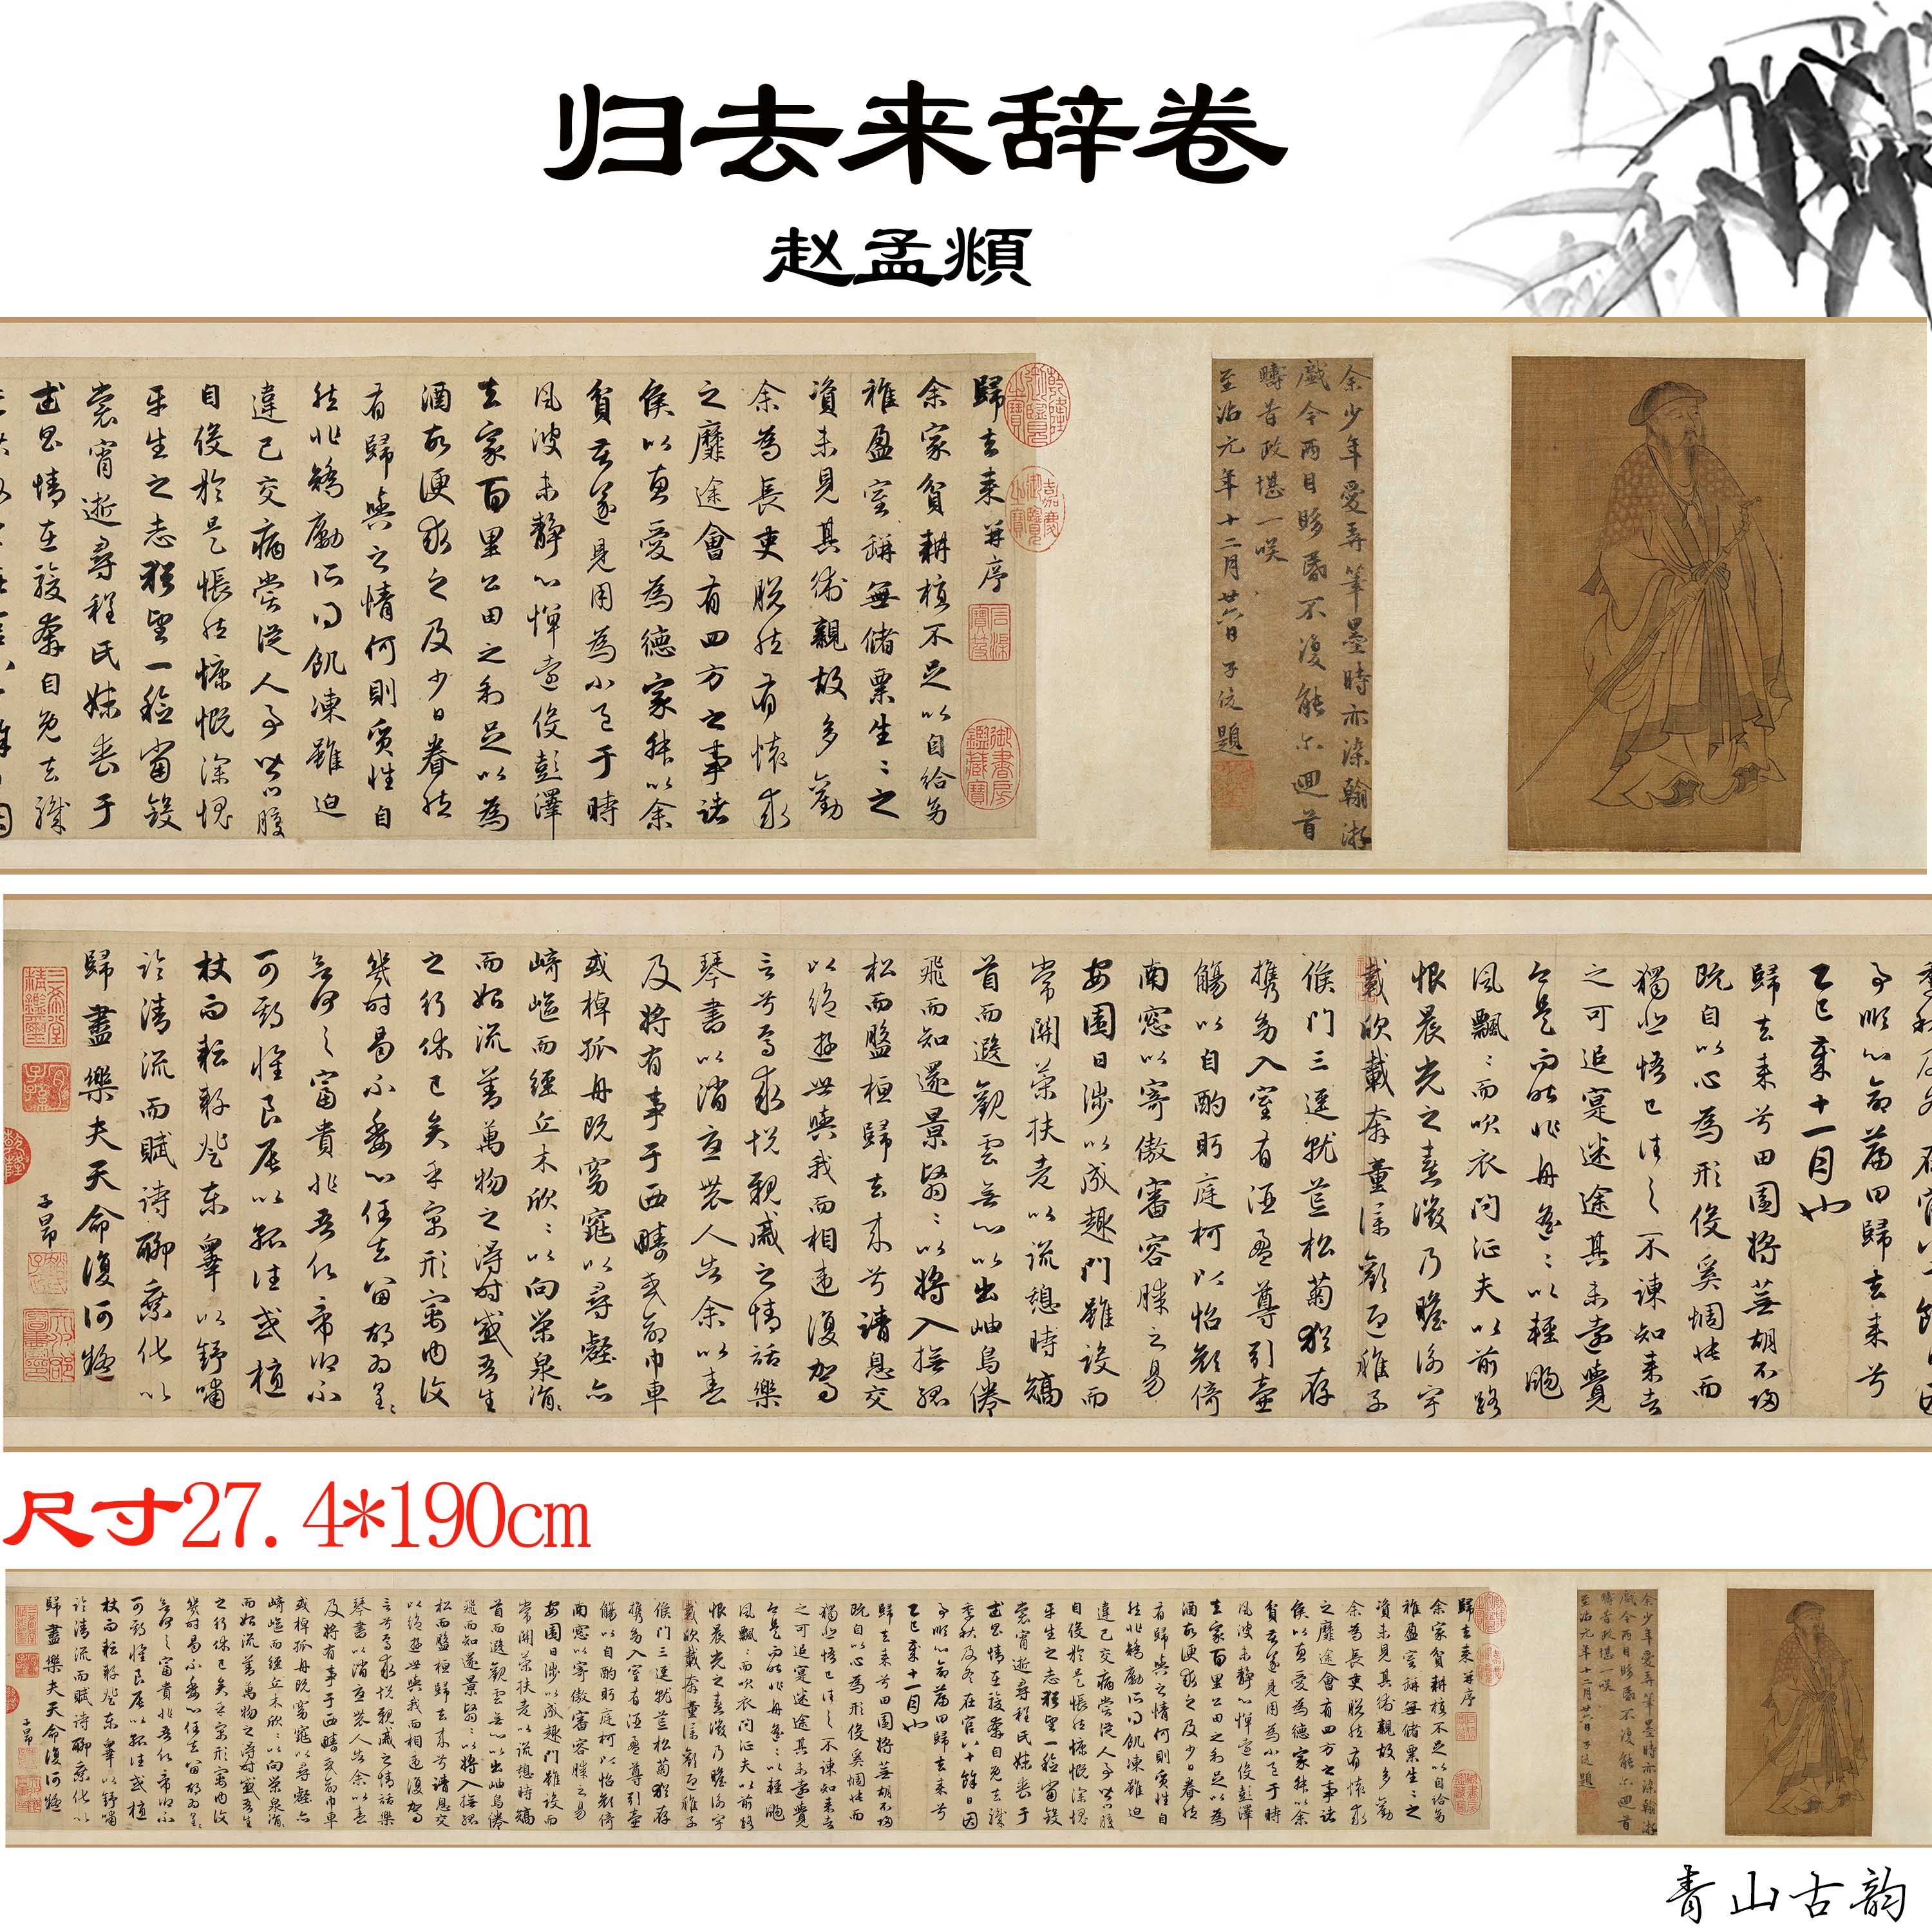 归去来辞卷
赵孟頫
余少年愛弄筆墨時亦染翰游
戲今两目眵昏不復能尔迴首
疇昔政堪一咲
至治元年十二月廿六日子俊題
歸去来并序
余家貧耕植不足以自給幼
稚盈室缾無儲粟生〻之
資未見其術親故多勸
余為長吏脱然有懷求
之靡途會有四方之事諸
侯以惠愛為德家叔以余
貧苦遂見用為小邑于時
風波未静心憚遠役彭澤
去家百里公田之利足以為
酒故便求之及少日眷然
有歸與之情何則質性自
然非矯勵所得飢凍雖迫
違己交病嘗從人事皆口腹
自役於是悵然慷慨深愧
平生之志猶望一稔當斂
裳宵逝尋程氏妹丧于
武昌情在駿奔自免去職
季秋及冬在官八十餘日因
事順心命篇曰歸去来兮
乙巳歲十一月也
歸去来兮田園将蕪胡不歸
既自以心為形役奚惆悵而
獨悲悟已往之不諫知来者
之可追寔迷途其未遠覺
今是而昨非舟遥〻以輕颺
風飄〻而吹衣問征夫以前路
恨晨光之熹微乃瞻衡宇
載欣載奔童僕歡迎稚子
候門三逕就荒松菊猶存
携幼入室有酒盈尊引壷
觴以自酌眄庭柯以怡顔倚
南窓以寄傲審容膝之易
安園日涉以成趣門雖設而
常関策扶老以流憩時矯
首而遐觀雲無心以出岫鳥倦
飛而知還景翳〻以将入撫孤
松而盤桓歸去来兮請息交
以絶遊世與我而相違復駕
言兮焉求悦親戚之情話樂
琴書以消憂農人告余以春
及将有事于西疇或命巾車
或棹孤舟既窈窕以尋壑亦
崎嶇而經丘木欣〻以向榮泉涓〻
而始流善萬物之得时感吾生
之行休已矣乎寓形宇内復
幾时曷不委心任去留胡為遑〻
欲何之富貴非吾願帝鄉不
可期懷良辰以孤往或植
杖而耘耔登東皐以舒嘯
臨清流而賦詩聊乘化以
歸盡樂夫天命復何疑
子昂
尺寸27.4*190cm
青山古韵